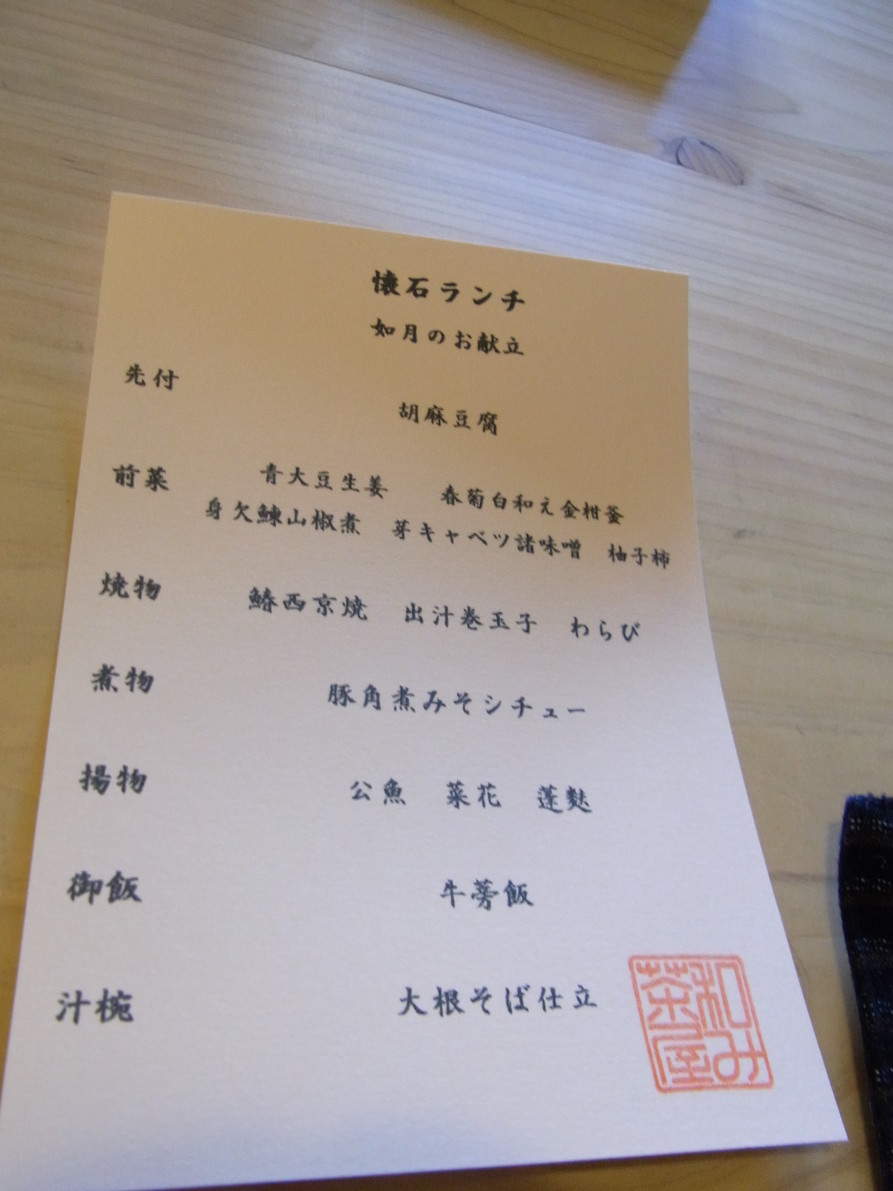 懐石ランチ
如月のお献立
先付
胡麻豆腐
前菜 青大豆生姜 春菊白和え金柑釜
身欠鰊山椒煮 芽キャベツ諸味噌 柚子柿
焼物 鰆西京焼 出汁巻玉子 わらび
煮物 豚角煮みそシチュー
揚物 公魚 菜花 蓬麩
御飯 牛蒡飯
汁椀 大根そば仕立
和み
茶屋